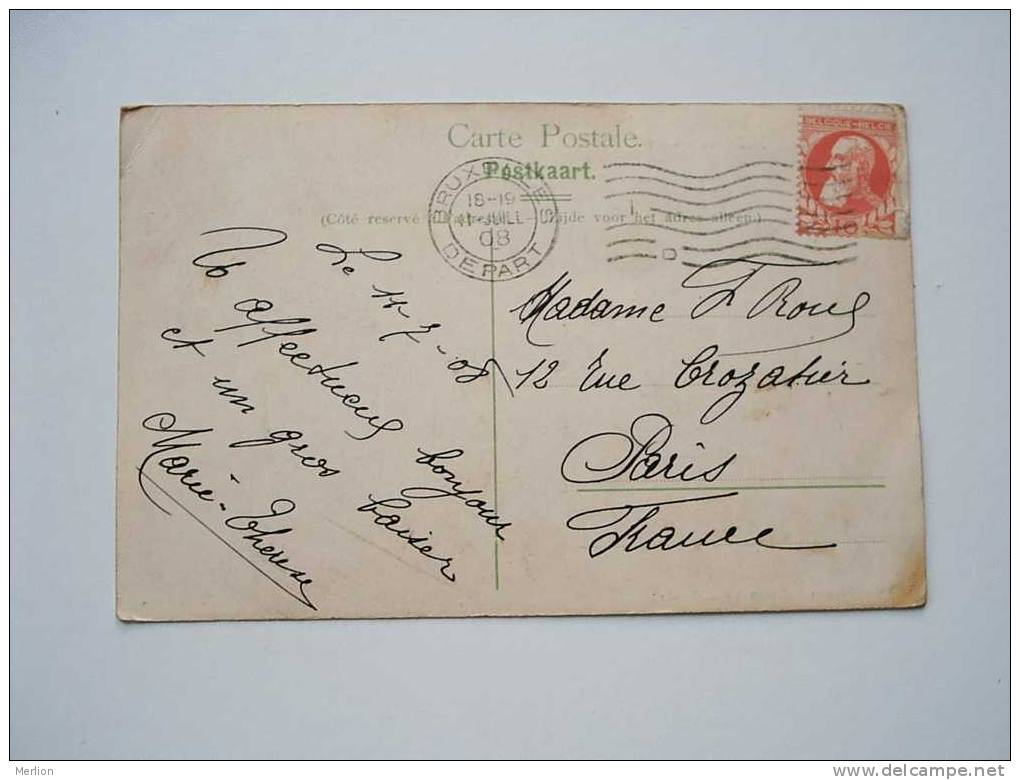 Carte Postale.
Postkaart.
(Côté reservé à l'adresse. — Zijde voor het adres alleen.)
BRUXELLES
18-19
11 JUILL
08
DEPART
BELGIQUE-BELGIË
10
Le 11-7-08
affectueux bonjour
et un gros baiser
Marie-Therese
Madame F Roux
12 Rue Crozatier
Paris
France
Merlion
http://www.delcampe.net